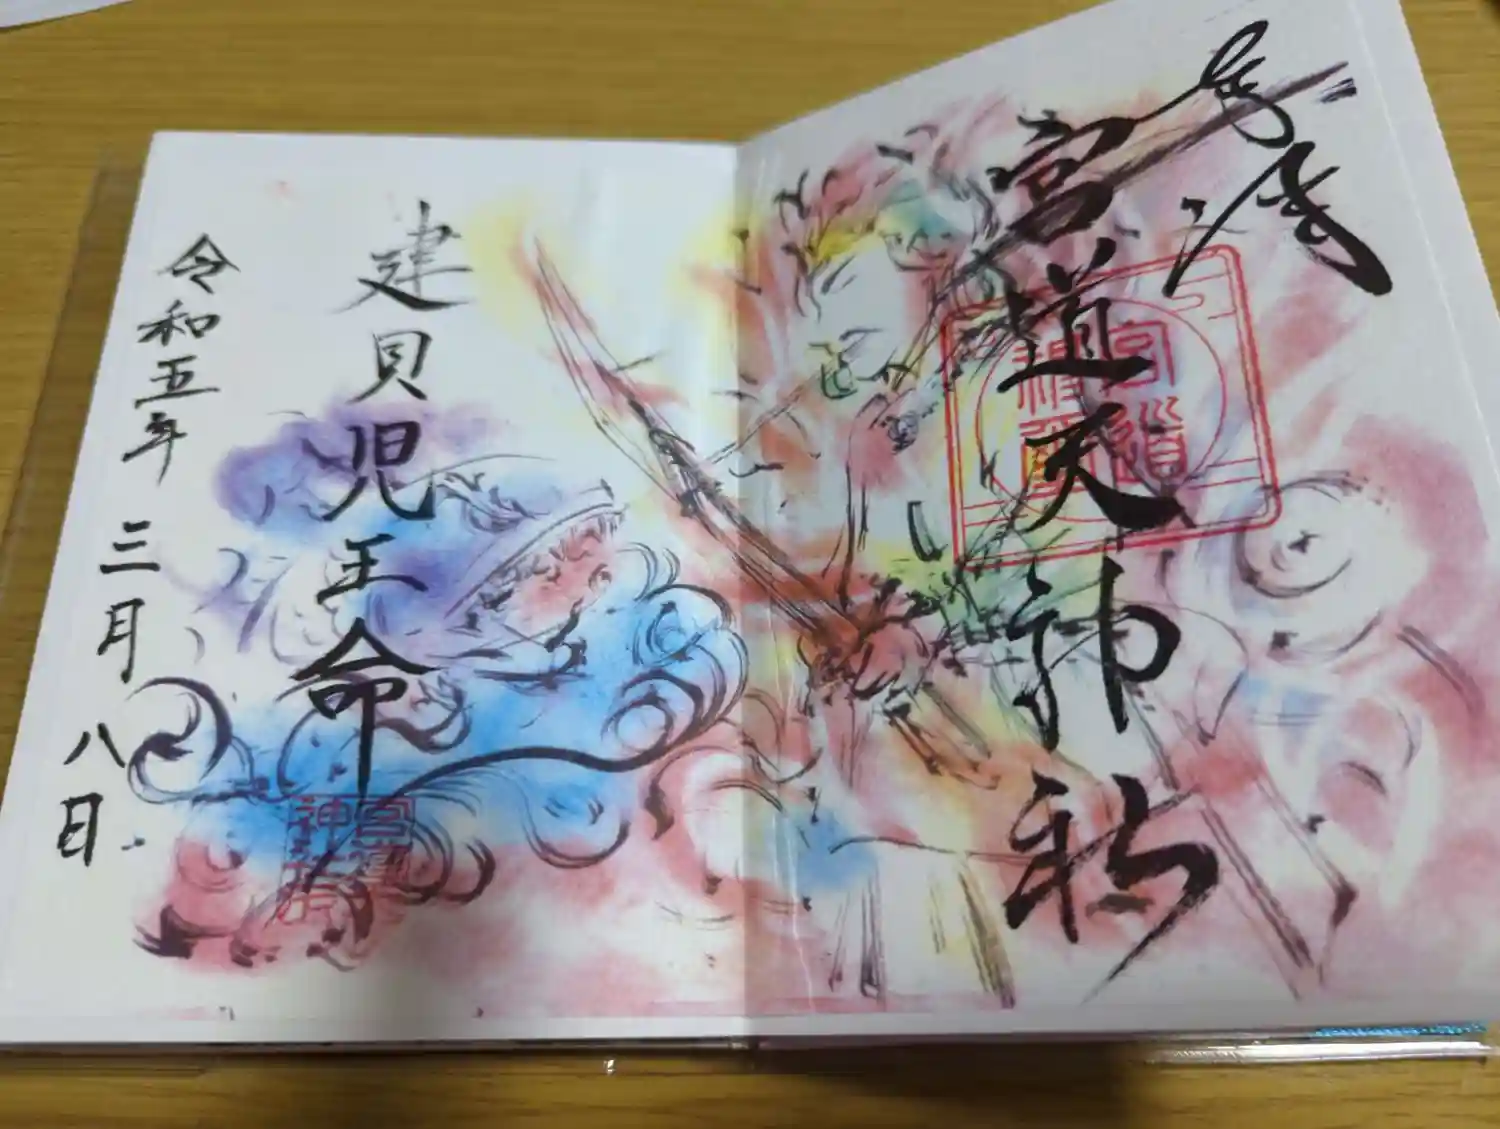 奉拝
宮道天神社
宮道
神社
建貝児王命
宮道
神社
令和五年 三月 八日